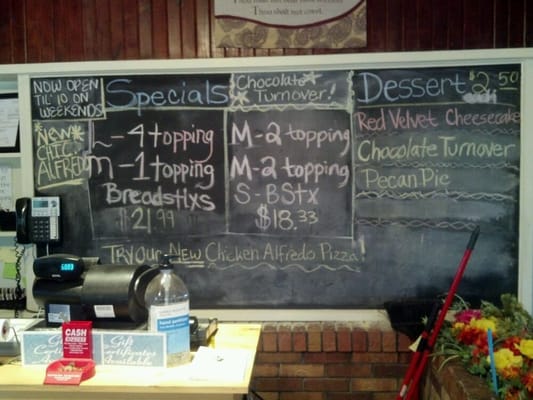 Thou shalt not covet.
NOW OPEN
TIL' 10 ON
WEEKENDS
*NEW*
CHIC
ALFREDO
Specials
L-4 topping
M-1 topping
Breadstxs
$21.99
Chocolate
Turnover!
M-2 topping
M-2 topping
S-BStx
$18.33
Dessert $2.50
Red Velvet Cheesecake
Chocolate Turnover
Pecan Pie
TRY OUR NEW Chicken Alfredo Pizza!
CASH
EXPRESS
Gift
Certificates